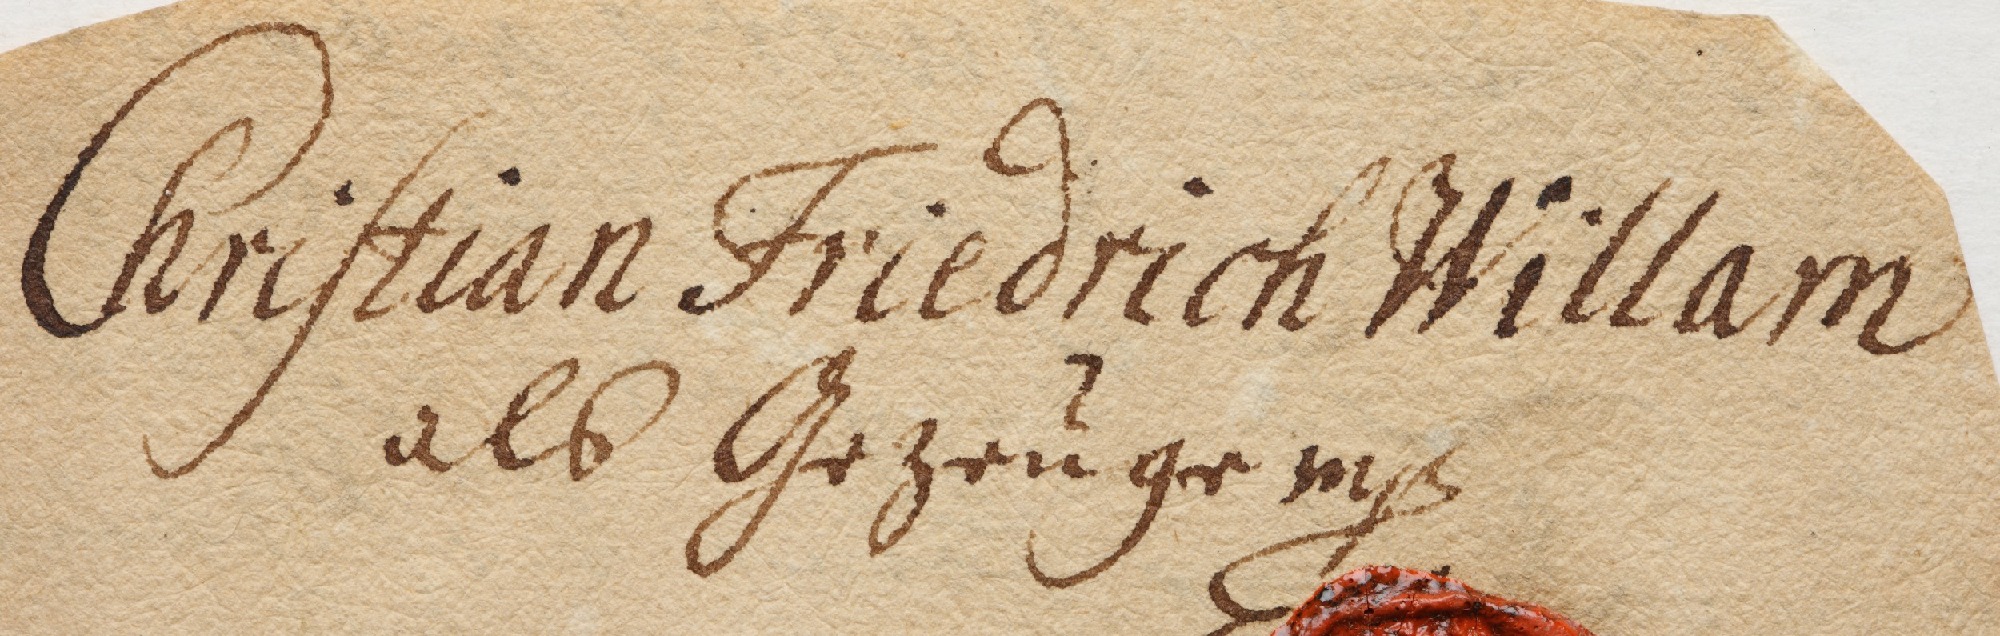 Christian Friedrich Willam
als Gezeuge mp